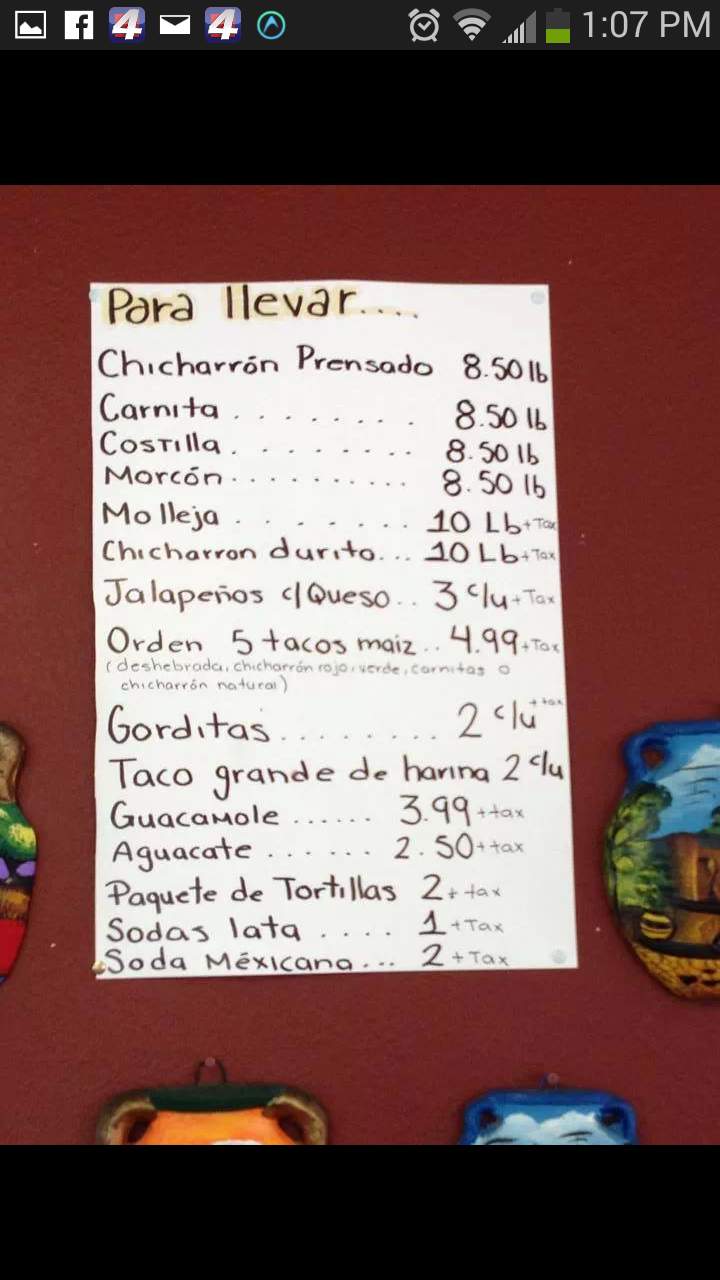 4 4 1:07 PM
Para llevar....
Chicharrón Prensado 8.50 lb
Carnita . . . . . . . . . 8.50 lb
Costilla . . . . . . . . . 8.50 lb
Morcón . . . . . . . . . . 8.50 lb
Molleja . . . . . . . 10 Lb + Tax
Chicharron durito... 10 Lb + Tax
Jalapeños c/Queso.. 3 c/u + Tax
Orden 5 tacos maiz.. 4.99 + Tax
(deshebrada, chicharrón rojo, verde, carnitas o
chicharrón natural)
Gorditas . . . . . . . . 2 c/u + tax
Taco grande de harina 2 c/u
Guacamole ...... 3.99 + tax
Aguacate ...... 2.50 + tax
Paquete de Tortillas 2 + tax
Sodas lata .... 1 + Tax
Soda Méxicana... 2 + Tax